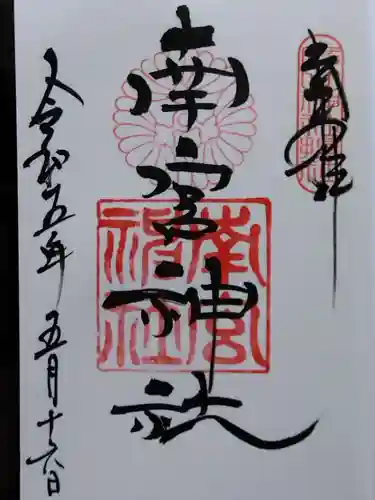 奉拝
南宮神社
令和五年五月十六日
南宮
神社